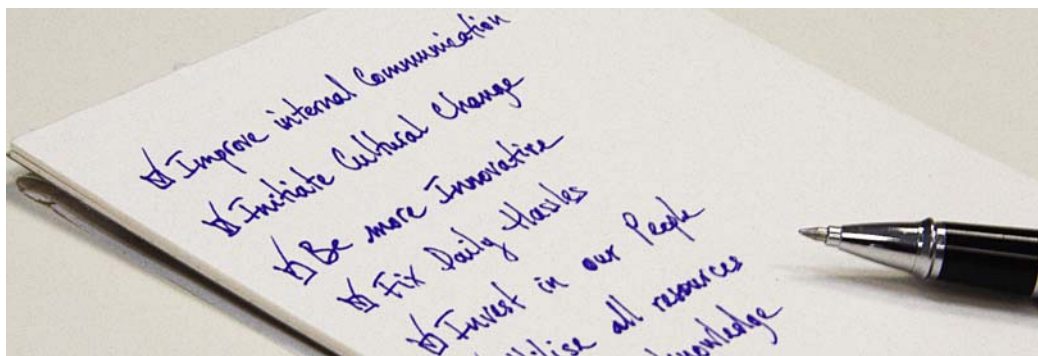 Improve internal Communication
Initiate Cultural Change
Be more Innovative
Fix Daily Hasles
Invest in our People
Utilise all resources
knowledge